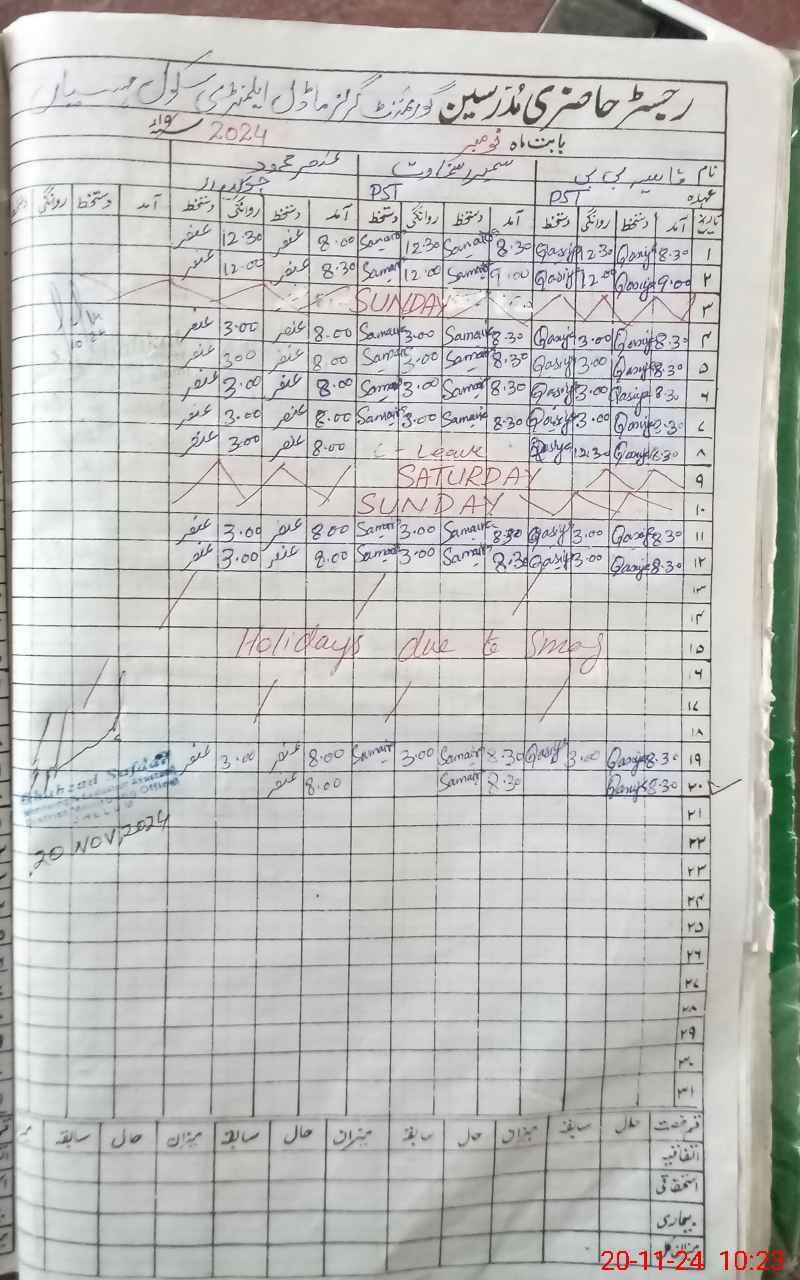 رجسٹر حاضری مدرسین گورنمنٹ گرلز ماڈل ایلمنٹری سکول
بابت ماہ نومبر 2024
نام
عہدہ PST PST
تاریخ آمد دستخط روانگی دستخط آمد دستخط روانگی دستخط آمد دستخط روانگی دستخط آمد دستخط روانگی
۱ 8.30 Qasiya 12.30 Qasiya 8.30 Samaira 12.30 Samaira 8.00 عنصر 12.30 عنصر
۲ 9.00 Qasiya 12.00 Qasiya 9.00 Samaira 12.00 Samaira 8.30 عنصر 12.00 عنصر
۳ SUNDAY
۴ 8.30 Qasiya 3.00 Qasiya 8.30 Samaira 3.00 Samaira 8.00 عنصر 3.00 عنصر
۵ 8.30 Qasiya 3.00 Qasiya 8.30 Samaira 3.00 Samaira 8.00 عنصر 3.00 عنصر
۶ 8.30 Qasiya 3.00 Qasiya 8.30 Samaira 3.00 Samaira 8.00 عنصر 3.00 عنصر
۷ 8.30 Qasiya 3.00 Qasiya 8.30 Samaira 3.00 Samaira 8.00 عنصر 3.00 عنصر
۸ 8.30 Qasiya 12.30 Qasiya C - Leave 8.00 عنصر 3.00 عنصر
۹ SATURDAY
۱۰ SUNDAY
۱۱ 8.30 Qasiya 3.00 Qasiya 8.30 Samaira 3.00 Samaira 8.00 عنصر 3.00 عنصر
۱۲ 8.30 Qasiya 3.00 Qasiya 8.30 Samaira 3.00 Samaira 8.00 عنصر 3.00 عنصر
۱۳
۱۴
۱۵ Holidays due to Smog
۱۶
۱۷
۱۸
۱۹ 8.30 Qasiya 3.00 Qasiya 8.30 Samaira 3.00 Samaira 8.00 عنصر 3.00 عنصر
۲۰ 8.30 Qasiya 8.30 Samaira 8.00 عنصر
20 NOV 2024
۲۱
۲۲
۲۳
۲۴
۲۵
۲۶
۲۷
۲۸
۲۹
۳۰
۳۱
رخصت حال سابقہ میزان حال سابقہ میزان حال سابقہ میزان حال سابقہ
اتفاقیہ
استحقاقی
بیماری
میزان کل
20-11-24 10:23